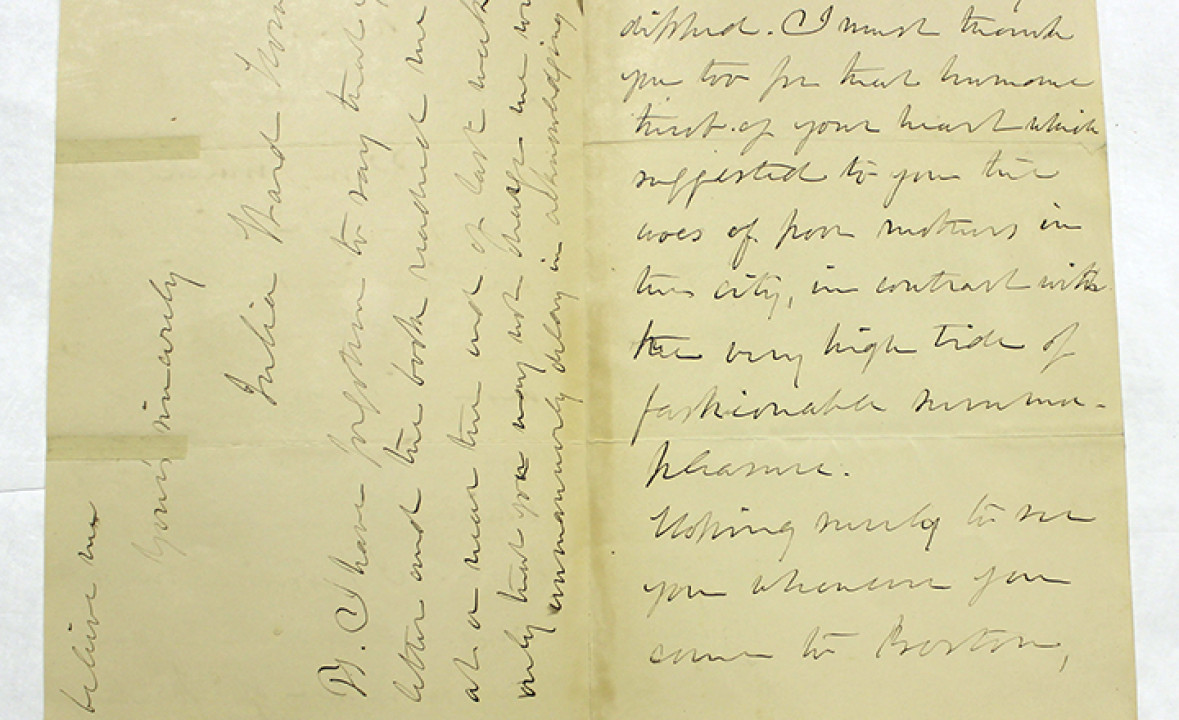 diffused. I must thank
you too for that humane
of your heart which
suggested to you the
woes of poor mothers in
this city, in contrast with
the very high tide of
fashionable summer-
pleasure.
Hoping surely to see
you whenever you
come to Boston,
believe me
Yours sincerely
Julia Ward Howe
P.S. I have forgotten to say that
letter and the book reached me
at or near the end of last week
only that you may not charge me
unmannerly delay in acknowledging